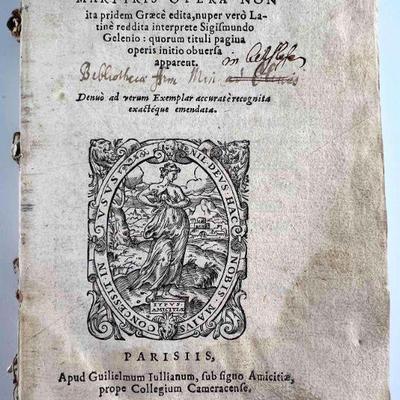 MARTYRIS OPERA NON
ita pridem Græcè edita, nuper verò La-
tinè reddita interprete Sigismundo
Gelenio: quorum tituli pagina
operis initio obuersa
apparent.
in
Bibliotheca
Denuò ad verum Exemplar accuratè recognita
exactéque emendata.
NIL DEVS HAC NOBIS MAIVS CONCESSIT IN VSVS
TYPVS
AMICITIÆ
PARISIIS,
Apud Guilielmum Iullianum, sub signo Amicitiæ,
prope Collegium Cameracense.